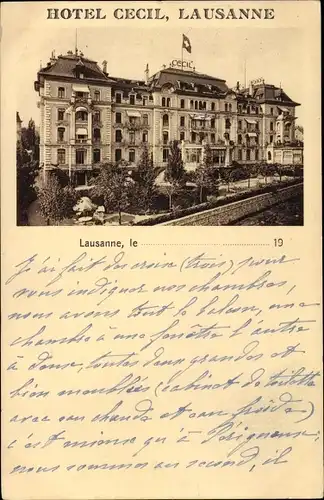 HOTEL CECIL, LAUSANNE
CECIL
Lausanne, le 19
J'ai fait des croix (trois) pour
vous indiquer nos chambres,
nous avons tout le balcon, une
chambre à une fenêtre l'autre
à deux, toutes deux grandes et
bien meublées (cabinet de toilette
avec eau chaude et eau froide)
c'est mieux qu'à Périgueux;
nous sommes au second, il